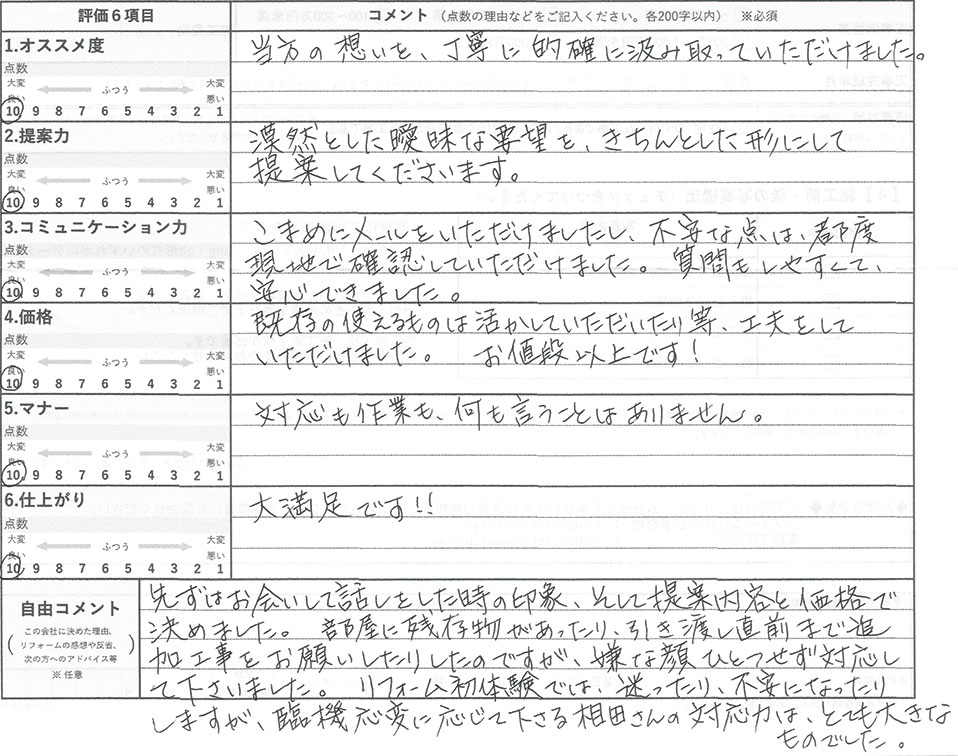 評価6項目
コメント （点数の理由などをご記入ください。各200字以内） ※必須
1.オススメ度
点数
大変良い ふつう 大変悪い
10 9 8 7 6 5 4 3 2 1
当方の想いを、丁寧に的確に汲み取っていただけました。
2.提案力
点数
大変良い ふつう 大変悪い
10 9 8 7 6 5 4 3 2 1
漠然とした曖昧な要望を、きちんとした形にして
提案してくださいます。
3.コミュニケーション力
点数
大変良い ふつう 大変悪い
10 9 8 7 6 5 4 3 2 1
こまめにメールをいただけましたし、不安な点は、都度
現地で確認していただけました。質問もしやすくて、
安心できました。
4.価格
点数
大変良い ふつう 大変悪い
10 9 8 7 6 5 4 3 2 1
既存の使えるものは活かしていただいたり等、工夫をして
いただけました。 お値段以上です！
5.マナー
点数
大変良い ふつう 大変悪い
10 9 8 7 6 5 4 3 2 1
対応も作業も、何も言うことはありません。
6.仕上がり
点数
大変良い ふつう 大変悪い
10 9 8 7 6 5 4 3 2 1
大満足です!!
自由コメント
（この会社に決めた理由、
リフォームの感想や反省、
次の方へのアドバイス等）
※ 任意
先ずはお会いして話しをした時の印象、そして提案内容と価格で
決めました。 部屋に残存物があったり、引き渡し直前まで追
加工事をお願いしたりしたのですが、嫌な顔ひとつせず対応し
て下さいました。 リフォーム初体験では、迷ったり、不安になったり
しますが、臨機応変に応じて下さる相田さんの対応力は、とても大きな
ものでした。